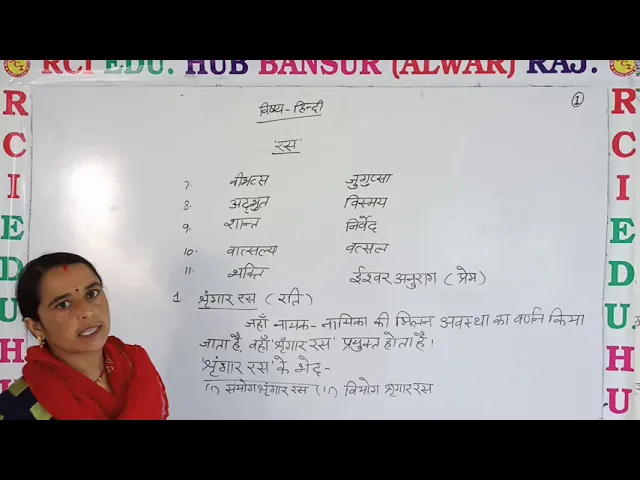 RCI EDU. HUB BANSUR (ALWAR) RAJ.
R C I E D U H
R C I E D U H U
1
विषय - हिन्दी
'रस'
7. वीभत्स जुगुप्सा
8. अद्भुत विस्मय
9. शान्त निर्वेद
10. वात्सल्य वत्सल
11. भक्ति ईश्वर अनुराग ( प्रेम )
1 शृंगार रस ( रति )
जहाँ नायक - नायिका की मिलन अवस्था का वर्णन किया
जाता है, वहाँ 'शृंगार रस' प्रयुक्त होता है।
'शृंगार रस' के भेद -
(i) संयोग शृंगार रस (ii) वियोग शृंगार रस